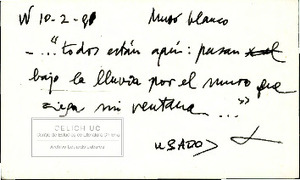 W 10-2-91 Muro blanco
- ... "todos están aquí: pasan
bajo la lluvia por el muro que
ciega mi ventana ..."
USADO
CELICH UC
Centro de Estudios de Literatura Chilena